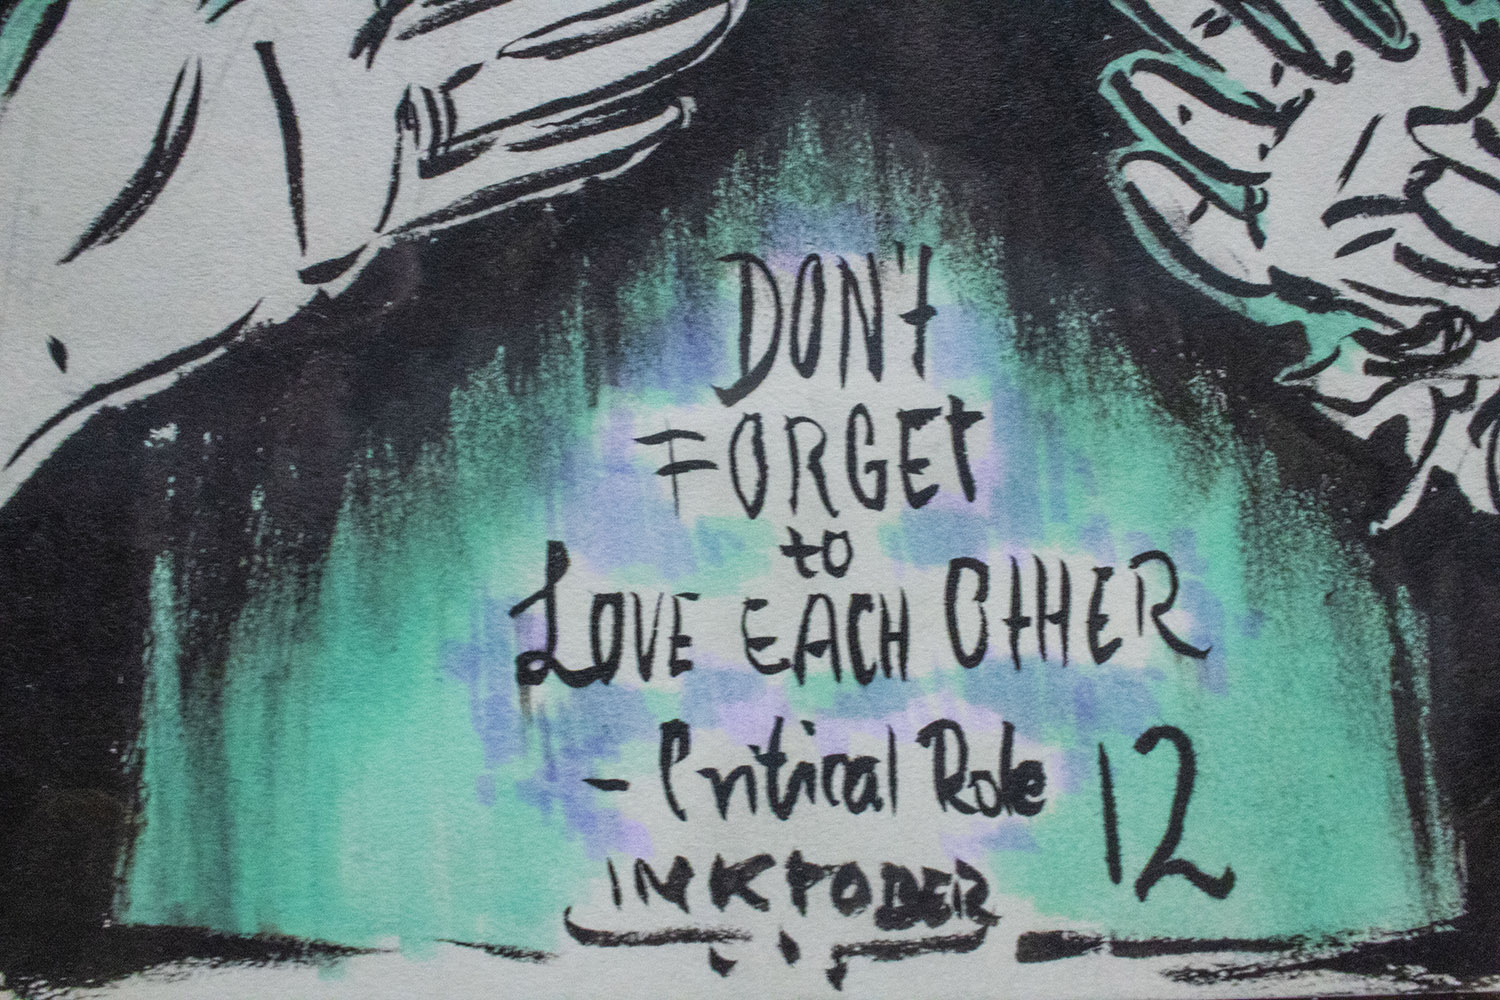 DON't
FORGEt
to
LOVE EACH OtHER
- Critical Role 12
INKTOBER